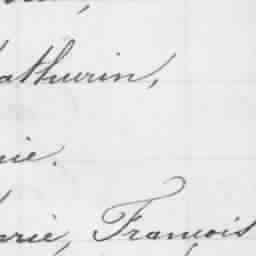 athurin,
nie.
arie, François